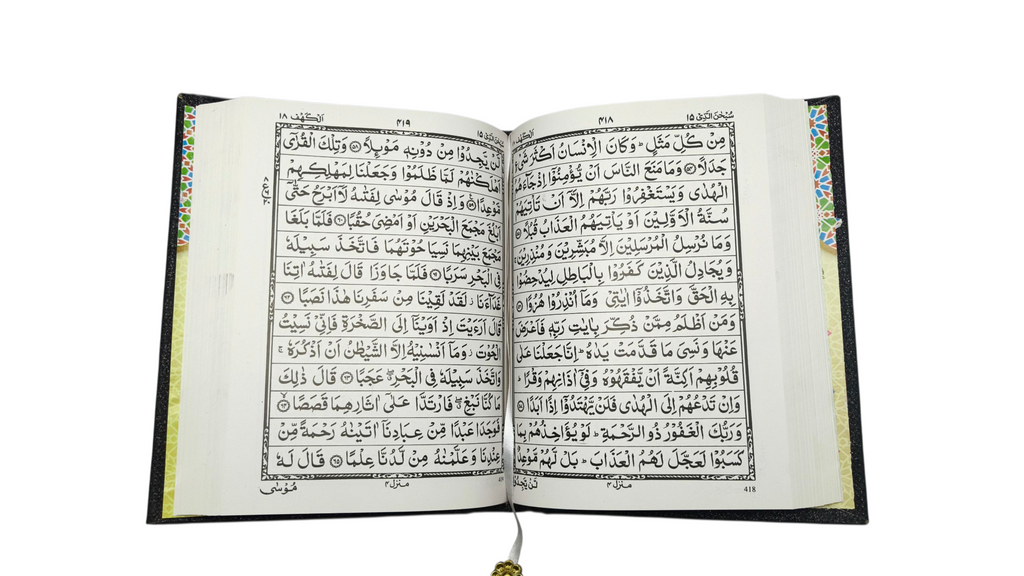 سُبْحٰنَ الَّذِیْۤ ۱۵ ۴۱۸ اَلْكَهْف
مِنْ كُلِّ مَثَلٍ ؕ وَكَانَ الْاِنْسَانُ اَكْثَرَ شَیْءٍ
جَدَلًا ﴿۵۴﴾ وَمَا مَنَعَ النَّاسَ اَنْ یُّؤْمِنُوْۤا اِذْ جَآءَهُمُ
الْهُدٰی وَیَسْتَغْفِرُوْا رَبَّهُمْ اِلَّاۤ اَنْ تَاْتِیَهُمْ
سُنَّةُ الْاَوَّلِیْنَ اَوْ یَاْتِیَهُمُ الْعَذَابُ قُبُلًا ﴿۵۵﴾
وَمَا نُرْسِلُ الْمُرْسَلِیْنَ اِلَّا مُبَشِّرِیْنَ وَمُنْذِرِیْنَ ۚ
وَیُجَادِلُ الَّذِیْنَ كَفَرُوْا بِالْبَاطِلِ لِیُدْحِضُوْا
بِهِ الْحَقَّ وَاتَّخَذُوْۤا اٰیٰتِیْ وَمَاۤ اُنْذِرُوْا هُزُوًا ﴿۵۶﴾
وَمَنْ اَظْلَمُ مِمَّنْ ذُكِّرَ بِاٰیٰتِ رَبِّهٖ فَاَعْرَضَ
عَنْهَا وَنَسِیَ مَا قَدَّمَتْ یَدٰهُ ؕ اِنَّا جَعَلْنَا عَلٰی
قُلُوْبِهِمْ اَكِنَّةً اَنْ یَّفْقَهُوْهُ وَفِیْۤ اٰذَانِهِمْ وَقْرًا ؕ
وَاِنْ تَدْعُهُمْ اِلَی الْهُدٰی فَلَنْ یَّهْتَدُوْۤا اِذًا اَبَدًا ﴿۵۷﴾
وَرَبُّكَ الْغَفُوْرُ ذُو الرَّحْمَةِ ؕ لَوْ یُؤَاخِذُهُمْ بِمَا
كَسَبُوْا لَعَجَّلَ لَهُمُ الْعَذَابَ ؕ بَلْ لَّهُمْ مَّوْعِدٌ
418 منزل ۴ لَّنْ یَّجِدُوْا
سُبْحٰنَ الَّذِیْۤ ۱۵ ۴۱۹ اَلْكَهْف ۱۸
لَّنْ یَّجِدُوْا مِنْ دُوْنِهٖ مَوْئِلًا ﴿۵۸﴾ وَتِلْكَ الْقُرٰۤی
اَهْلَكْنٰهُمْ لَمَّا ظَلَمُوْا وَجَعَلْنَا لِمَهْلِكِهِمْ
مَّوْعِدًا ﴿۵۹﴾ وَاِذْ قَالَ مُوْسٰی لِفَتٰىهُ لَاۤ اَبْرَحُ حَتّٰۤی
اَبْلُغَ مَجْمَعَ الْبَحْرَیْنِ اَوْ اَمْضِیَ حُقُبًا ﴿۶۰﴾ فَلَمَّا بَلَغَا
مَجْمَعَ بَیْنِهِمَا نَسِیَا حُوْتَهُمَا فَاتَّخَذَ سَبِیْلَهٗ
فِی الْبَحْرِ سَرَبًا ﴿۶۱﴾ فَلَمَّا جَاوَزَا قَالَ لِفَتٰىهُ اٰتِنَا
غَدَآءَنَا ؗ لَقَدْ لَقِیْنَا مِنْ سَفَرِنَا هٰذَا نَصَبًا ﴿۶۲﴾
قَالَ اَرَءَیْتَ اِذْ اَوَیْنَاۤ اِلَی الصَّخْرَةِ فَاِنِّیْ نَسِیْتُ
الْحُوْتَ ؗ وَمَاۤ اَنْسٰىنِیْهُ اِلَّا الشَّیْطٰنُ اَنْ اَذْكُرَهٗ ۚ
وَاتَّخَذَ سَبِیْلَهٗ فِی الْبَحْرِ ۖ عَجَبًا ﴿۶۳﴾ قَالَ ذٰلِكَ
مَا كُنَّا نَبْغِ ۖ فَارْتَدَّا عَلٰۤی اٰثَارِهِمَا قَصَصًا ﴿۶۴﴾
فَوَجَدَا عَبْدًا مِّنْ عِبَادِنَاۤ اٰتَیْنٰهُ رَحْمَةً مِّنْ
عِنْدِنَا وَعَلَّمْنٰهُ مِنْ لَّدُنَّا عِلْمًا ﴿۶۵﴾ قَالَ لَهٗ
419 منزل ۴ مُوْسٰی